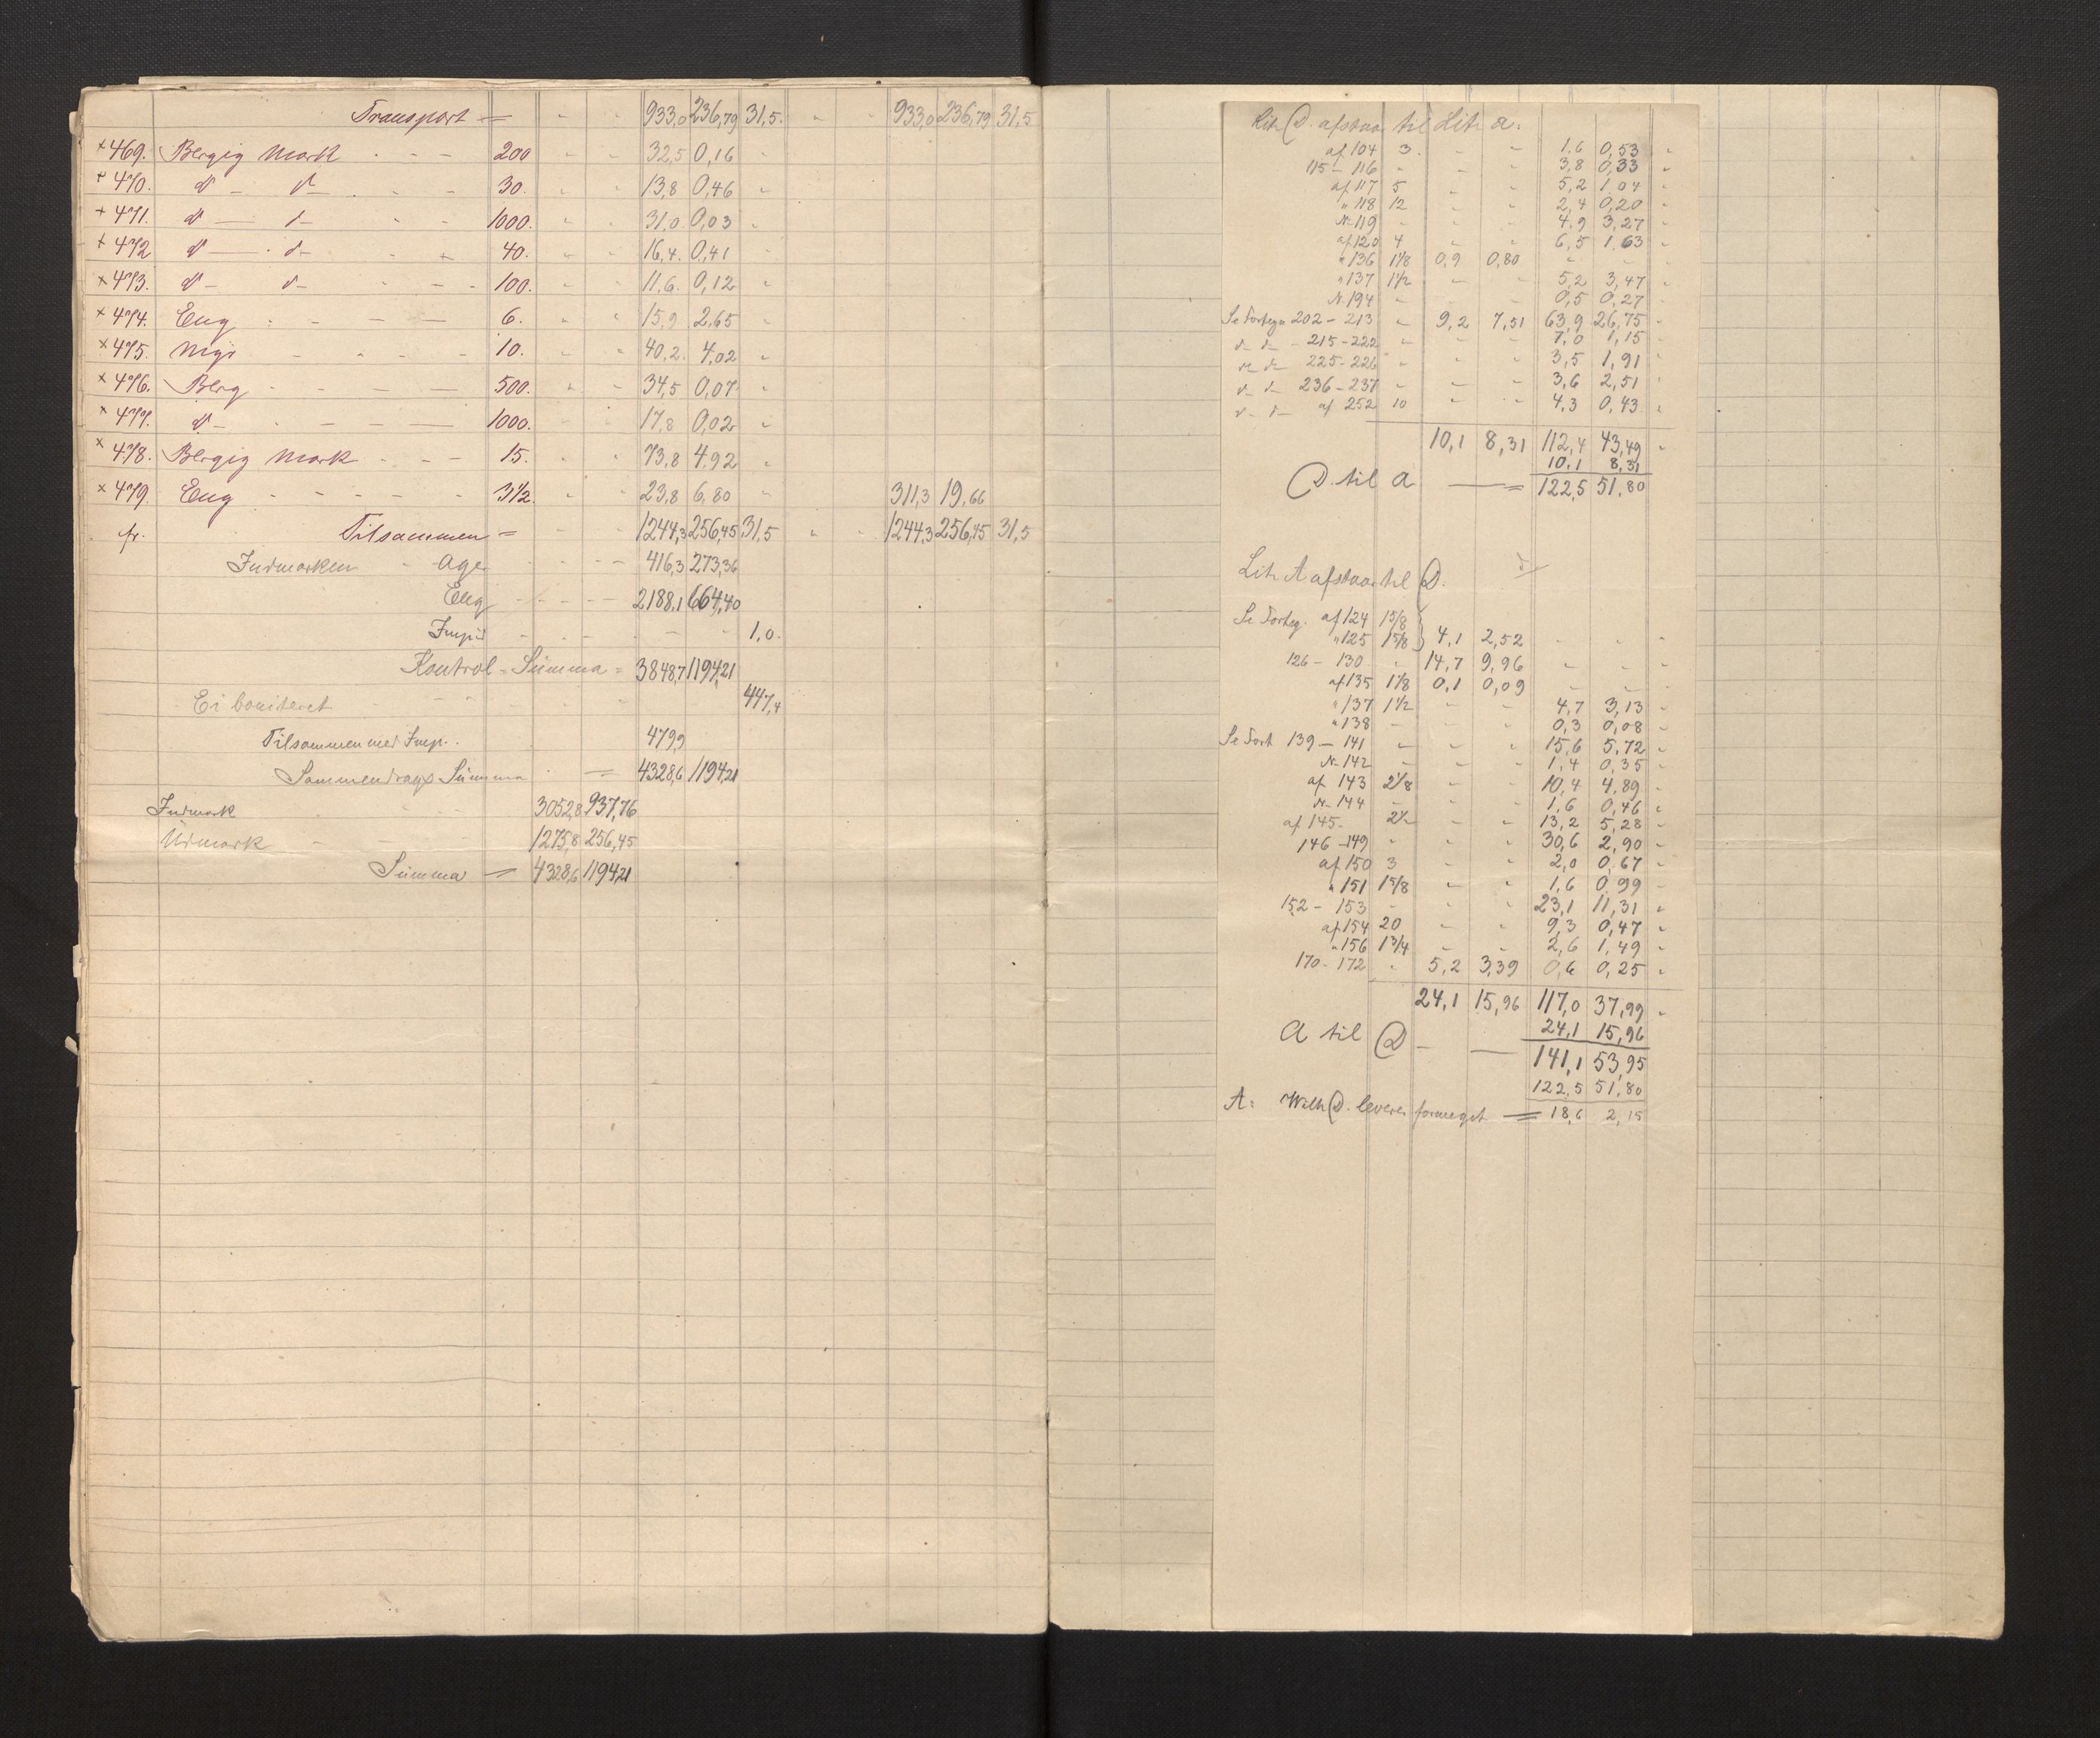 Transport = " " 933,0 236,79 31,5. " " 933,0 236,79 31,5
× 469. Bergig Mark - - - 200 " " 32,5 0,16 "
× 470. d - d - - - 30. " " 13,8 0,46 "
+ 471. d - d - - - 1000. " " 31,0 0,03 "
+ 472 d - d - - - 40. " " 16,4. 0,41 "
× 473. d - d - - - 100. " " 11,6. 0,12 "
× 474. Eng - - - 6. " " 15,9 2,65 "
× 475. Myr - - - 10. " " 40,2. 4,02 "
× 476. Berg - - - 500. " " 34,5 0,07 "
× 477. d - - - 1000. " " 17,8 0,02 "
× 478. Bergig Mark - - - 15. " " 73,8 4,92 "
× 479. Eng - - - 3½. " " 23,8 6,80 " 311,3 19,66
Tilsammen = " " 1244,3 256,45 31,5 " " 1244,3 256,45 31,5
Indmarken - Ager - - - 416,3 273,36
Eng - - - 2188,1 664,40
Impd - - - 1,0.
Kontrol = Summa = 3848,7 1194,21
Ei boniteret - - - 447,4
Tilsammen med Imp. 479,9
Sammendrags Summa = 4328,6 1194,21
Indmark - - 3052,8 937,76
Udmark - - 1275,8 256,45
Summa = 4328,6 1194,21
Litr D. afstaar til Litr a.
af 104 3. " " 1,6 0,53 "
115 - 116 " " " 3,8 0,33 "
af 117 5 " " 5,2 1,04 "
" 118 12 " " 2,4 0,20 "
N- 119 " " " 4,9 3,27 "
af 120 4 " " 6,5 1,63 "
" 136 1 1/8 0,9 0,80 " " "
" 137 1½ " " 5,2 3,47 "
N- 194 " " " 0,5 0,27 "
Se Forteg. 202 - 213 " 9,2 7,51 63,9 26,75 "
d- d- 215-222 " " " 7,0 1,15 "
d- d- 225-226 " " " 3,5 1,91 "
d- d- 236-237 " " " 3,6 2,51 "
d- d- af 252 10 " " 4,3 0,43 "
10,1 8,31 112,4 43,49 "
10,1 8,31
D. til a = 122,5 51,80
Litr A afstaar til D.
Se Forteg. af 124 1 5/8
" 125 1 5/8 } 4,1 2,52 " " "
126 - 130 " 14,7 9,96 " " "
af 135 1 1/8 0,1 0,09 " " "
" 137 1½ " " 4,7 3,13 "
" 138 " " " 0,3 0,08 "
Se Fort 139 - 141 " " " 15,6 5,72 "
N- 142 " " " 1,4 0,35 "
af 143 2 1/8 " " 10,4 4,89 "
N- 144 " " " 1,6 0,46 "
af 145 - 2½ " " 13,2 5,28 "
146 - 149 " " " 30,6 2,90 "
af 150 3 " " 2,0 0,67 "
" 151 1 5/8 " " 1,6 0,99 "
152 - 153 " " " 23,1 11,31 "
af 154 20 " " 9,3 0,47 "
" 156 1 3/4 " " 2,6 1,49 "
170 - 172 " 5,2 3,39 0,6 0,25 "
24,1 15,96 117,0 37,99 "
24,1 15,96
A til D - - 141,1 53,95
122,5 51,80
A: D. leverer formeget = 18,6 2,15